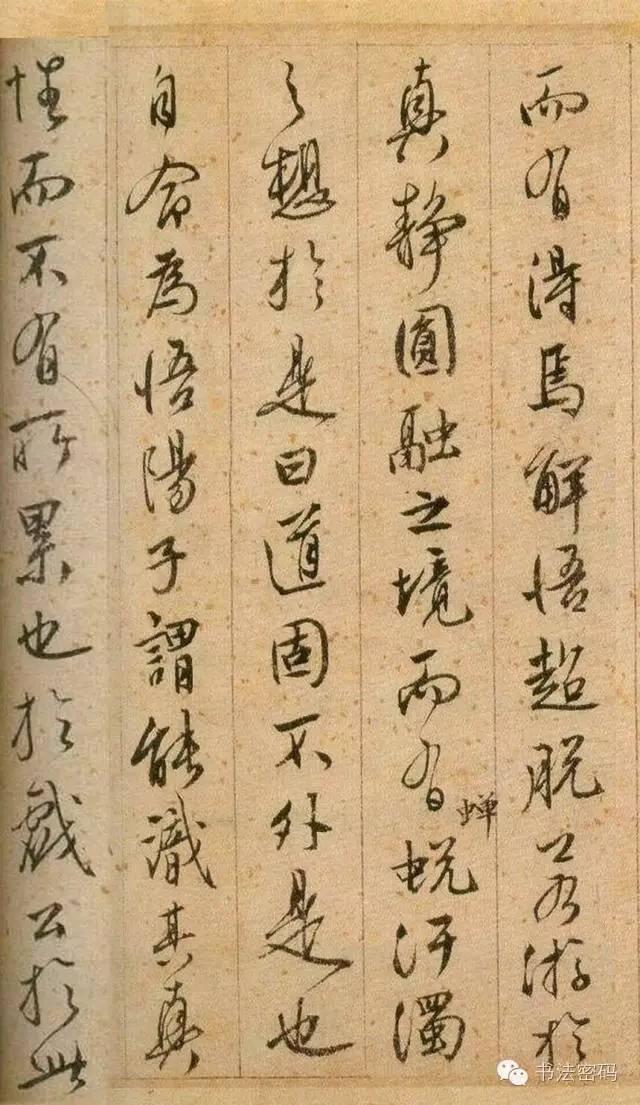 而有得焉解悟超脫若游於
真静圓融之境而有蝉蜕汙濁
之想於是曰道固不外是也
自命為悟陽子謂能識其真
性而不有所累也於戲公於此
书法密码